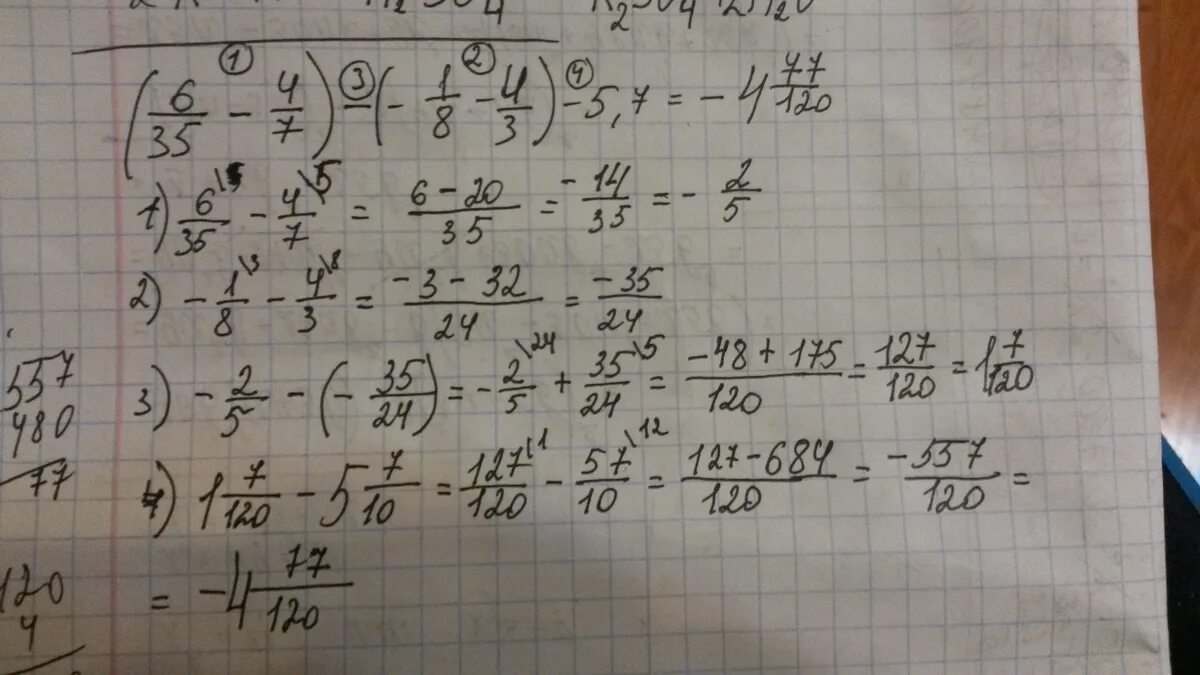 ① ③ ② ④
(6/35 − 4/7) − (− 1/8 − 4/3) − 5,7 = − 4 77/120
1) 6/35 − 4/7 \5 = (6 − 20)/35 = −14/35 = − 2/5
2) − 1/8 \3 − 4/3 \8 = (−3 − 32)/24 = −35/24
3) − 2/5 − (− 35/24) = − 2/5 \24 + 35/24 \5 = (−48 + 175)/120 = 127/120 = 1 7/120
4) 1 7/120 − 5 7/10 = 127/120 \1 − 57/10 \12 = (127 − 684)/120 = −557/120 =
= −4 77/120
557
480
77
120
4